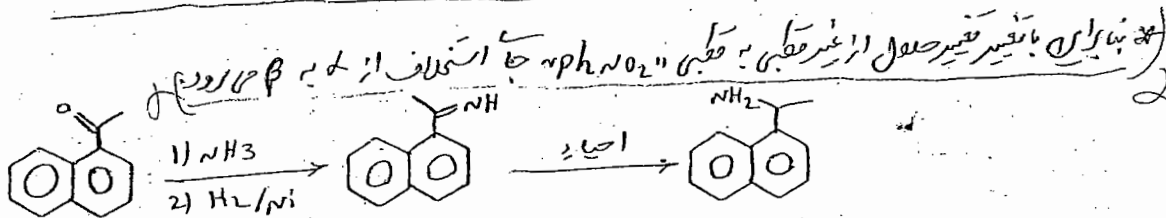 * بنابراین با تغییر حلال از غیر قطبی به قطبی "phNO2" جا استخلاف از α به β می رود
O NH NH2
1) NH3 احیاء
2) H2/Ni